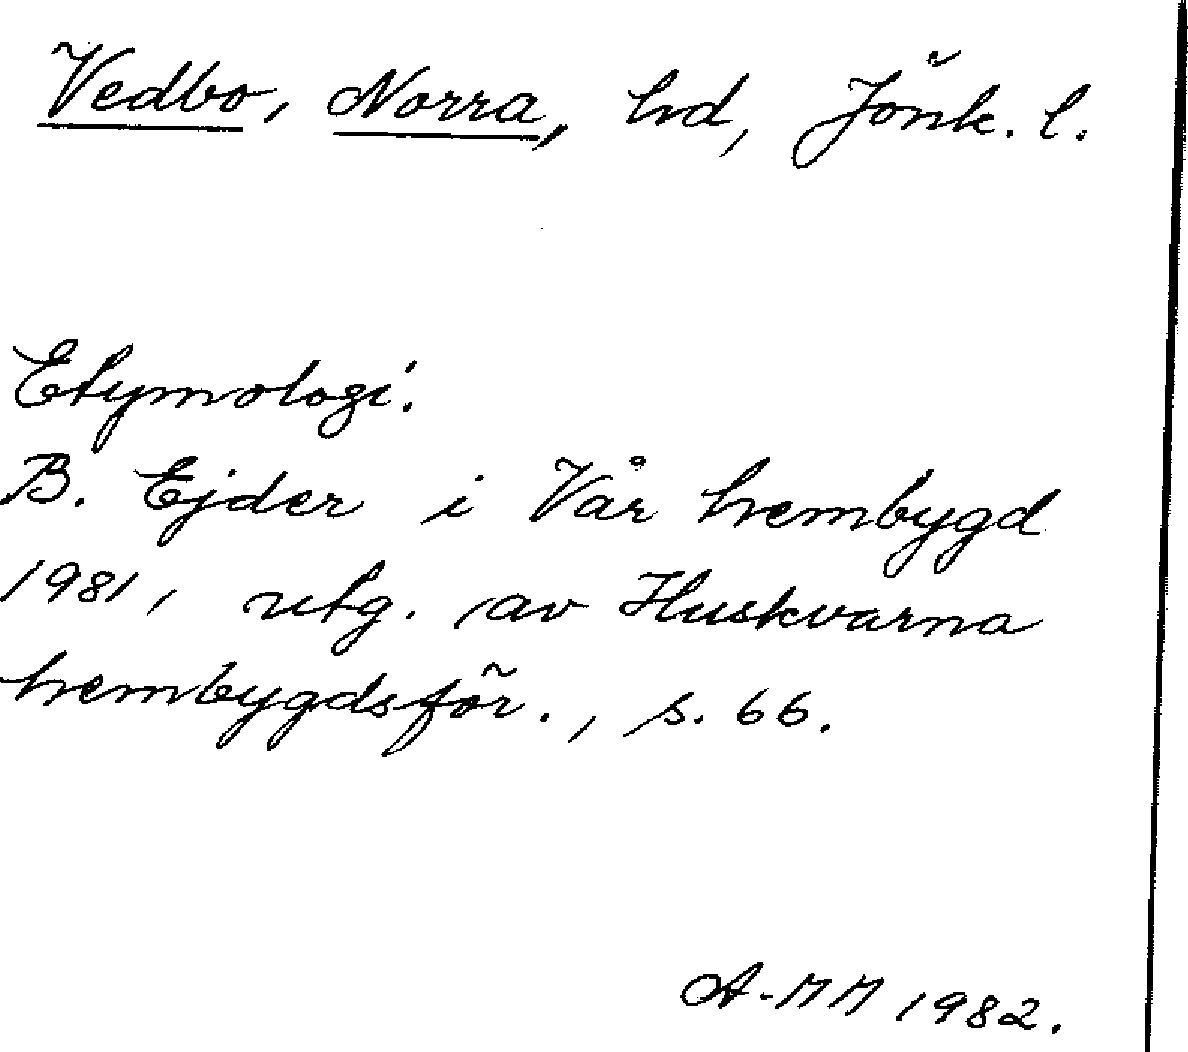 Vedbo, Norra, hd, Jönk. l.
Etymologi:
B. Ejder i Vår hembygd
1981, utg. av Huskvarna
hembygdsför., s. 66.
A-MM 1982.